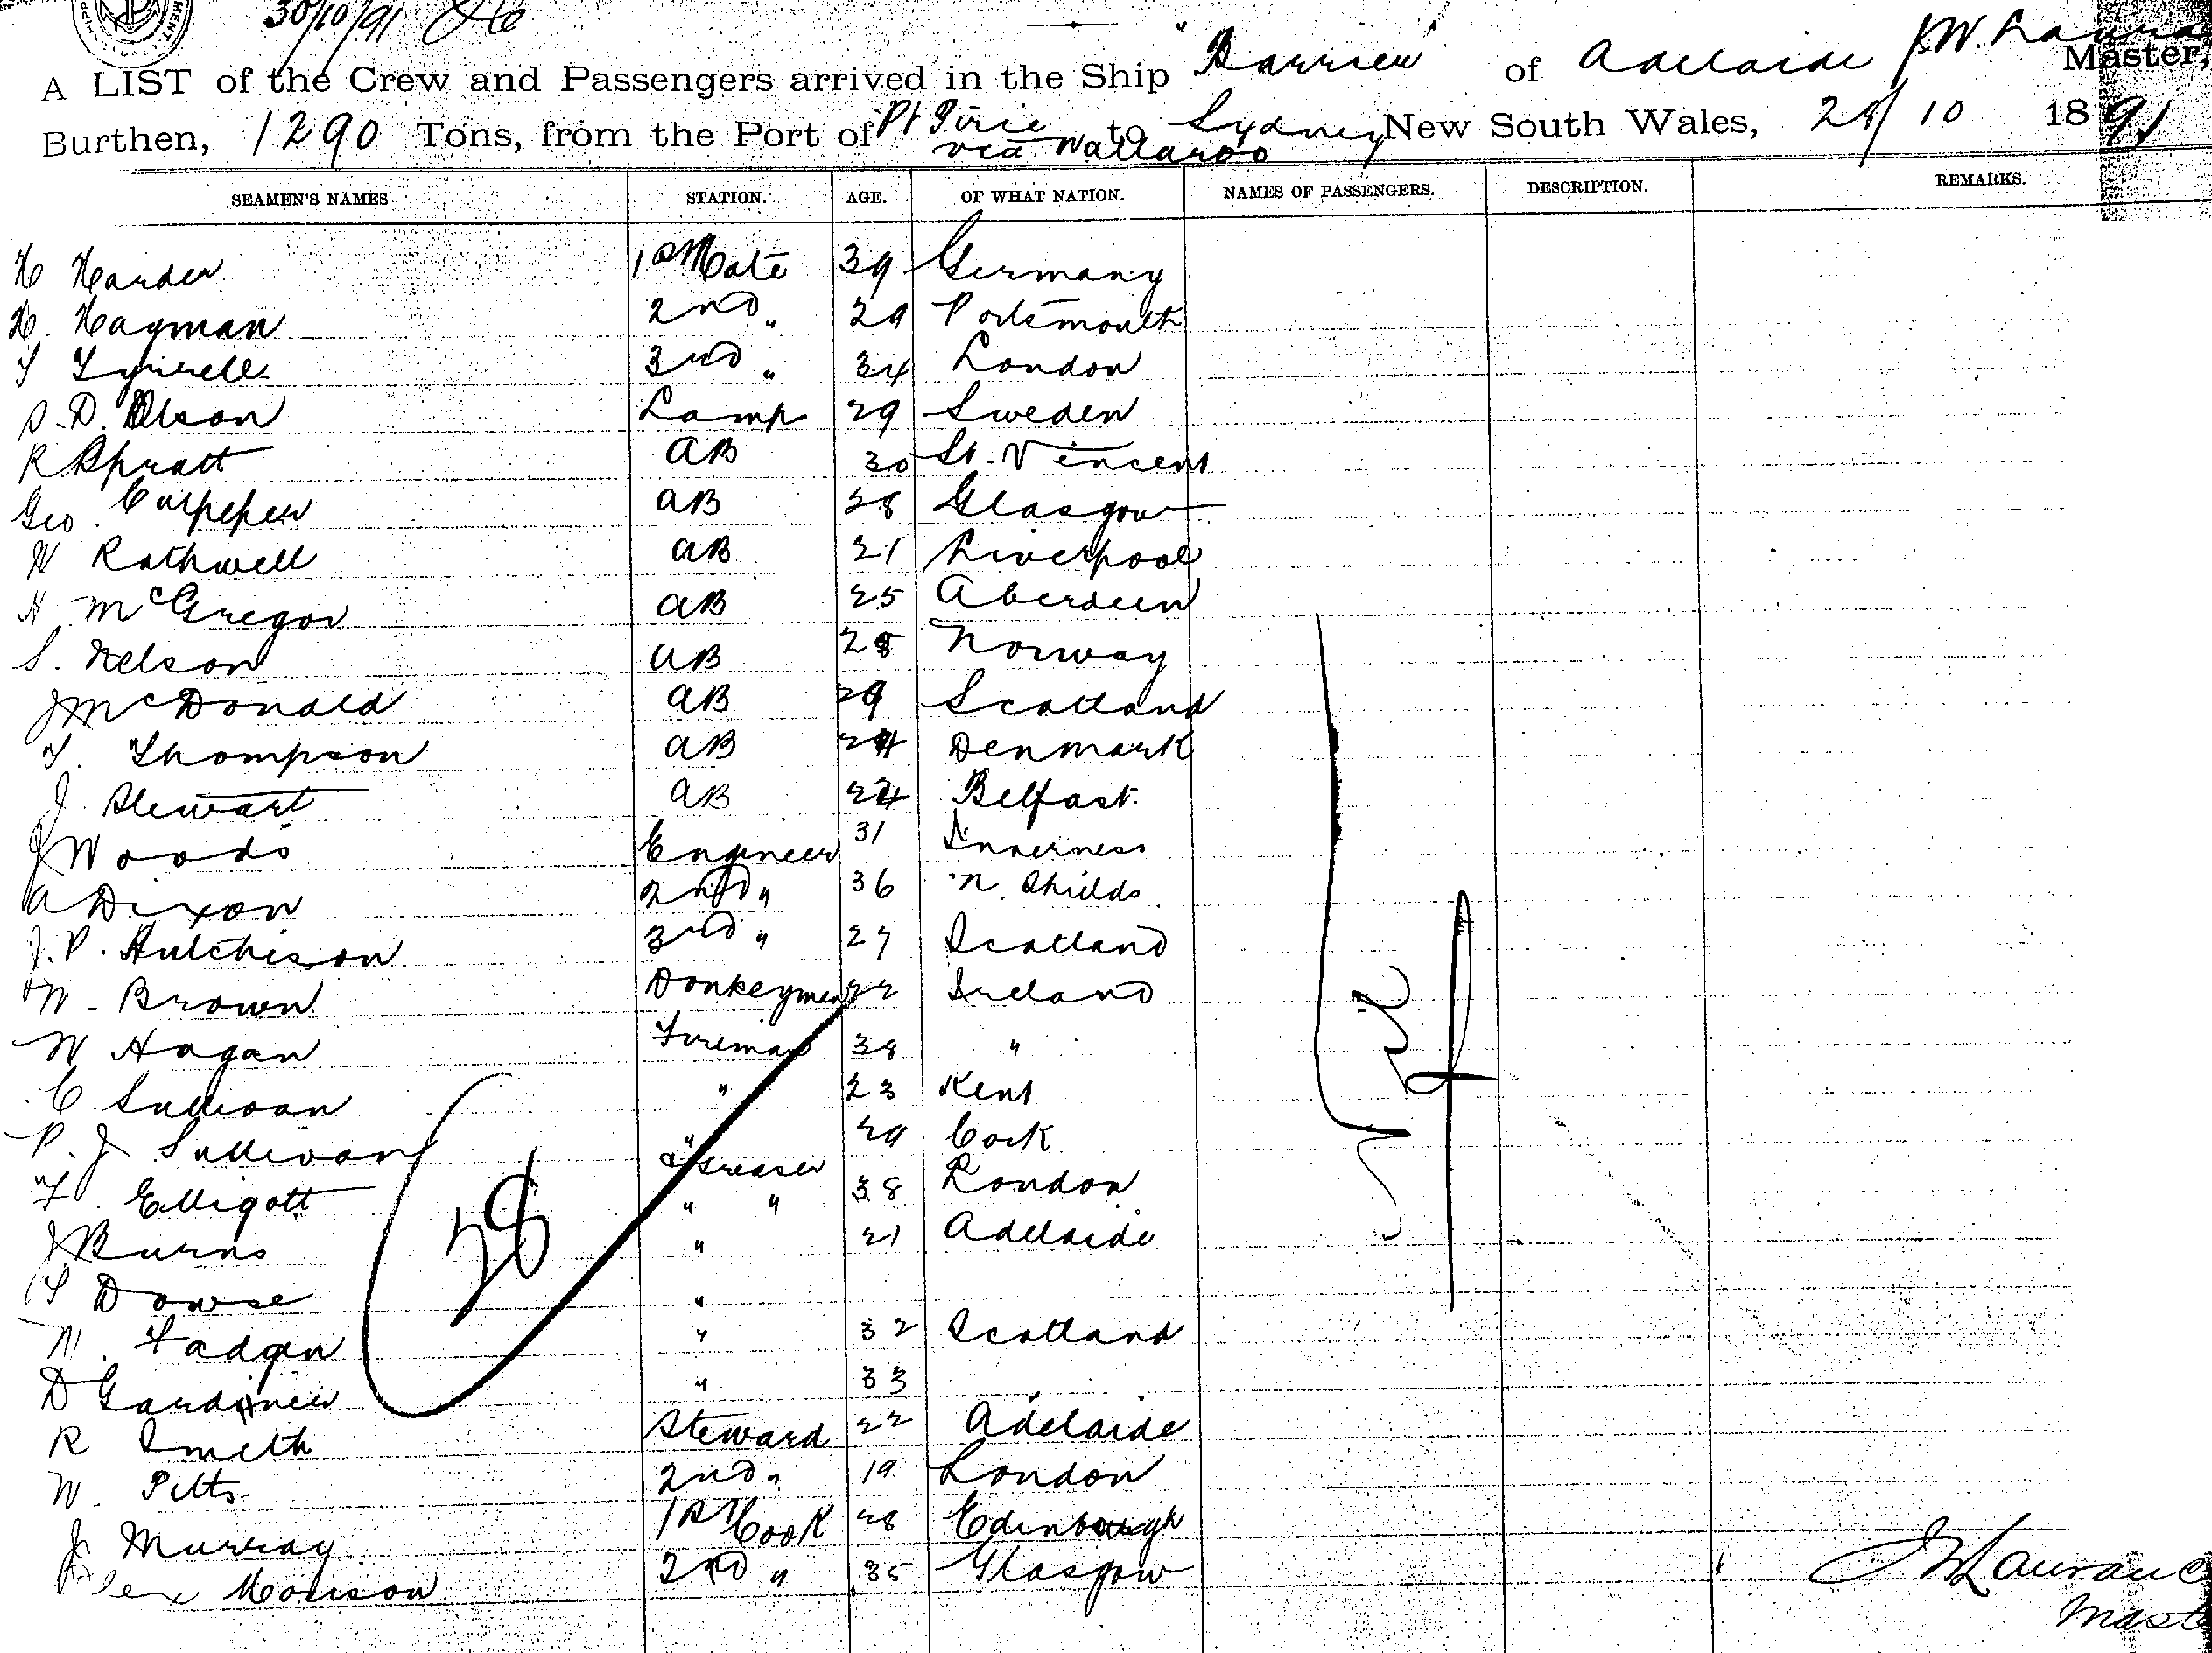 30/10/91
A LIST of the Crew and Passengers arrived in the Ship "Barrier" of Adelaide J.W. Laura Master,
Burthen, 1290 Tons, from the Port of Pt Pirie via Wallaroo to Sydney New South Wales, 28/10 1891
SEAMEN'S NAMES STATION. AGE. OF WHAT NATION. NAMES OF PASSENGERS. DESCRIPTION. REMARKS.
H Harder 1st Mate 39 Germany
H. Hayman 2nd " 29 Portsmouth
T Tyrrell 3rd " 34 London
S. D. Olson Lamp 29 Sweden
R Spratt AB 30 St. Vincent
Geo. Culpeper AB 28 Glasgow
W Rathwell AB 21 Liverpool
H McGregor AB 25 Aberdeen
S. Nelson AB 28 Norway
J McDonald AB 29 Scotland
T. Thompson AB 24 Denmark
J Stewart AB 24 Belfast
J Woods Engineer 31 Inverness
A Dixon 2nd " 36 N. Shields
J. P. Hutchison 3rd " 27 Scotland
W. Brown Donkeyman 22 Ireland
W Hagan Fireman 38 "
C. Sullivan " 23 Kent
P. J Sullivan " & Greaser 29 Cork
T. Elligott " " 38 London
J Burns " 21 Adelaide
T Dowse "
N. Fadgen " 32 Scotland
D Gardiner " 33
R Smith Steward 22 Adelaide
W. Pitts 2nd " 19 London
J. Murray 1st Cook 28 Edinbough
Alex Morison 2nd " 35 Glasgow
28
J W Lauranc
Maste